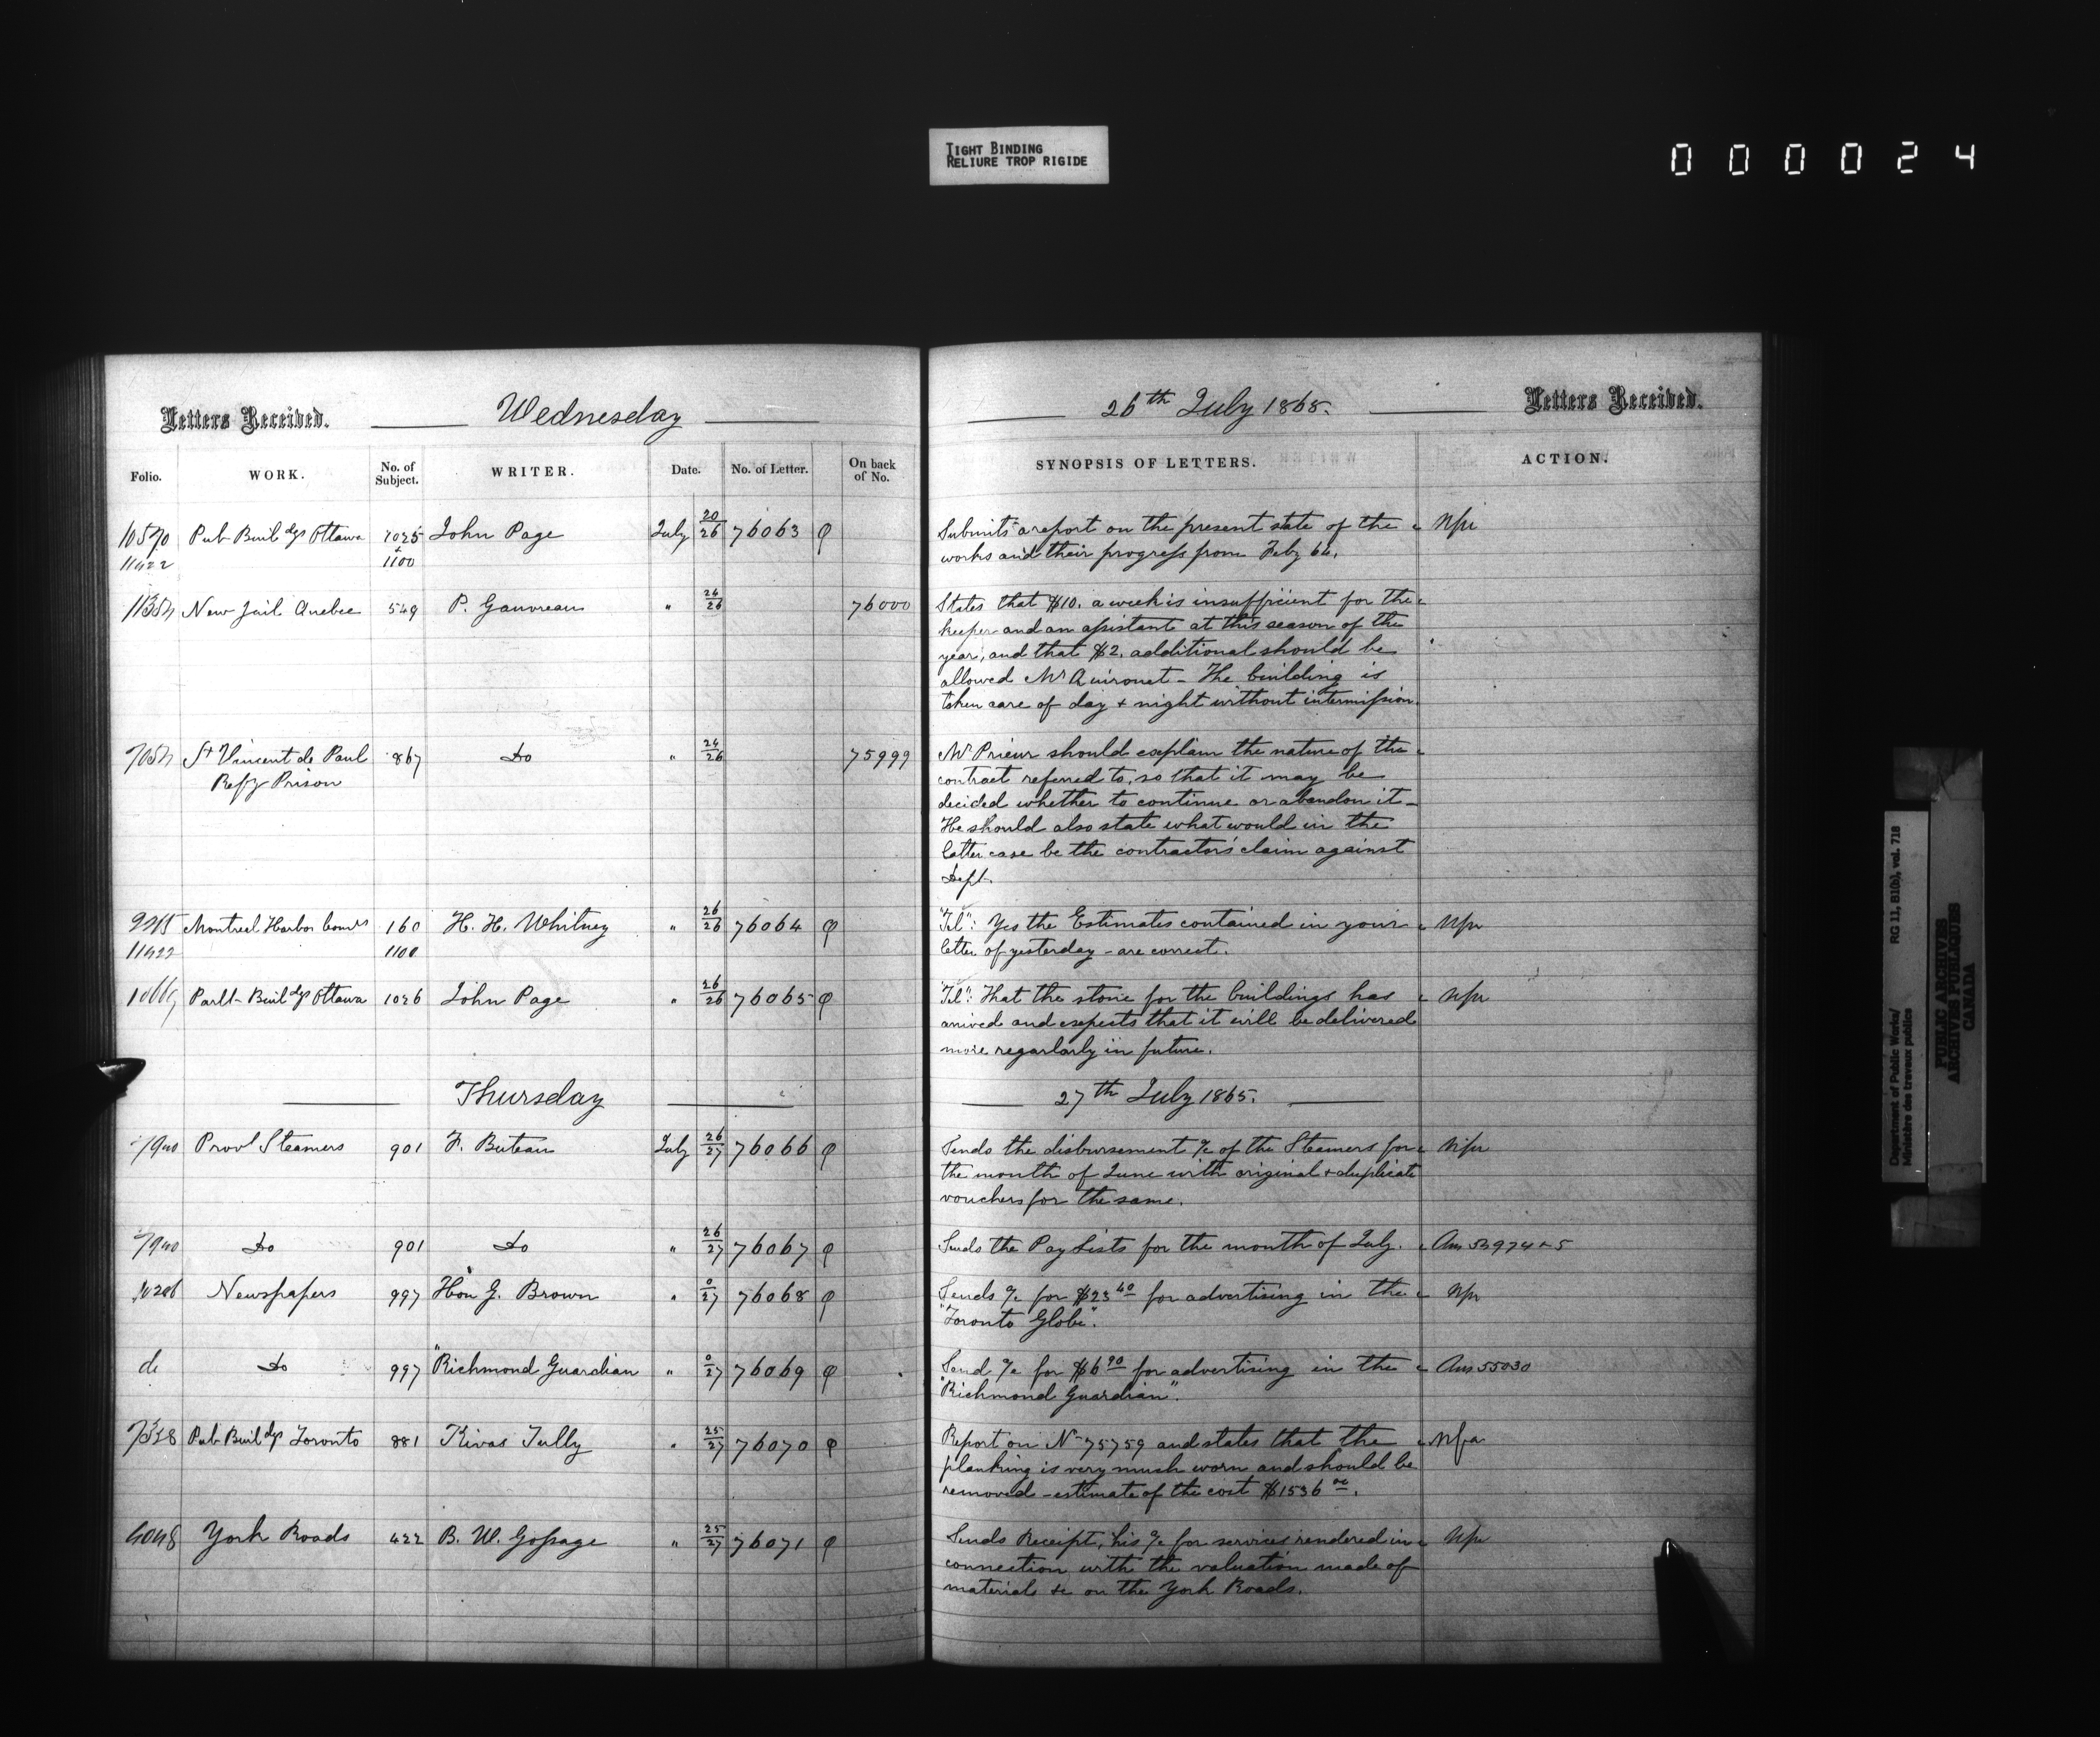 TIGHT BINDING
RELIURE TROP RIGIDE
000024
Letters Received. Wednesday 26th July 1865. Letters Received.
Folio. WORK. No. of Subject. WRITER. Date. No. of Letter. On back of No. SYNOPSIS OF LETTERS. ACTION.
Pub Buildgs Ottawa 1025 John Page July 20/26 76063 Submits a report on the present state of the
11422 + 1100 works and their progress from Feby 64.
New Jail Quebec 549 P. Gauvreau " 24/26 76000 States that $10. a week is insufficient for the
keeper and an assistant at this season of the
year, and that $2. additional should be
allowed Mr Quironet - The building is
taken care of day + night without intermission.
St Vincent de Paul 867 Do " 24/26 75999 Mr Prieur should explain the nature of the
Refy Prison contract referred to, so that it may be
decided whether to continue or abandon it -
He should also state what would in the
latter case be the contractors' claim against
Dept.
Montreal Harbor Comrs 160 H. H. Whitney " 26/26 76064 "Tel": Yes the Estimates contained in your
11422 1100 letter of yesterday - are correct.
Parlt Buildgs Ottawa 1026 John Page " 26/26 76065 "Tel": That the stone for the buildings has
arrived and expects that it will be delivered
more regarlarly in future.
Thursday 27th July 1865.
Provl Steamers 901 F. Buteau July 26/27 76066 Sends the disbursement a/c of the Steamers for
the month of June with original + duplicate
vouchers for the same.
Do 901 Do " 26/27 76067 Sends the Pay Lists for the month of July. Ans 54974 + 5
Newspapers 997 Hon G. Brown " 0/27 76068 Sends a/c for $23 40 for advertising in the
"Toronto Globe".
do Do 997 "Richmond Guardian " 0/27 76069 Send a/c for $6 90 for advertising in the Ans 55030
"Richmond Guardian".
Pub Buildgs Toronto 881 Kivas Tully " 25/27 76070 Report on No 75759 and states that the
planking is very much worn and should be
removed - estimate of the cost $1536 00.
York Roads 422 B. W. Gossage " 25/27 76071 Sends Receipt, his a/c for services rendered in
connection with the valuation made of
materials &c on the York Roads.
Department of Public Works/ RG 11, B1(b), vol. 718
Ministère des travaux publics
PUBLIC ARCHIVES
ARCHIVES PUBLIQUES
CANADA